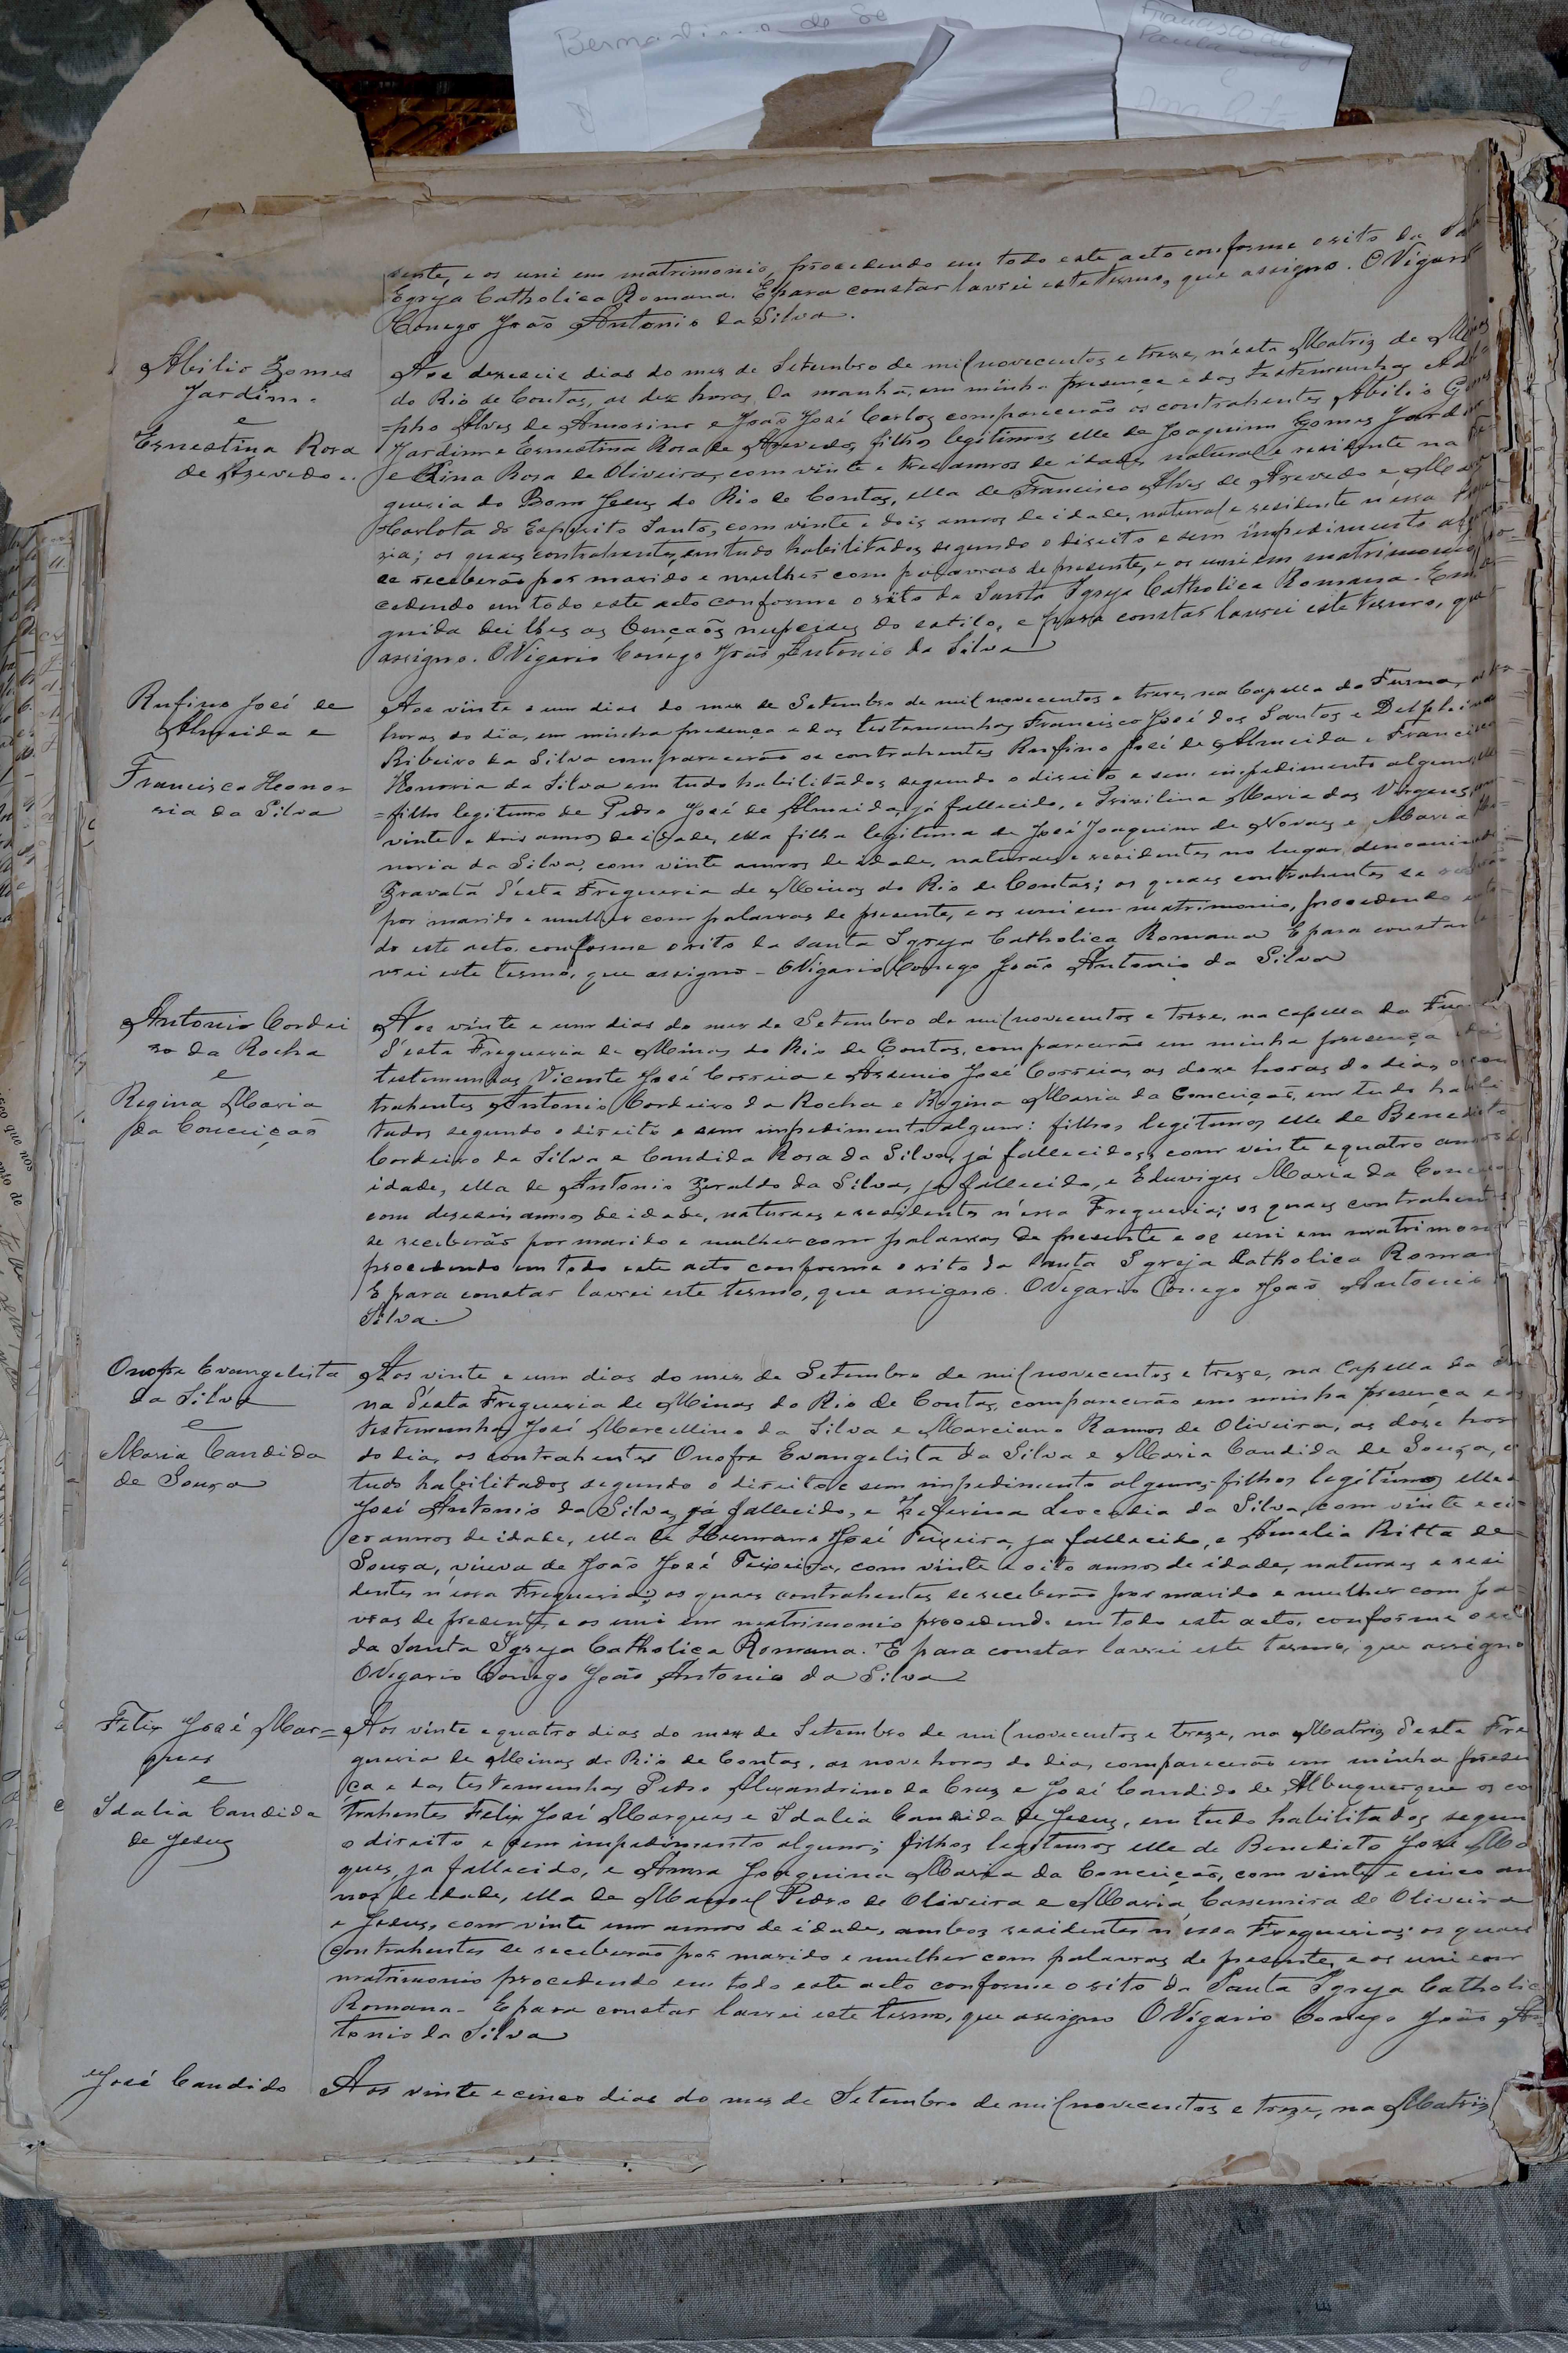 Bernardina de Se
Francisco de
Paula
e
sente, e os uni em matrimonio, procedendo em todo este acto conforme o rito da
Egreja Catholica Romana. E para constar lavrei este termo, que assigno. O Vigari
Conego João Antonio da Silva.
Abilio Gomes
Jardim.
e
Ernestina Rosa
de Azevedo..
Aos deseseis dias do mez de Setembro de mil novecentos e treze, n'esta Matriz de Minas
do Rio de Contas, as dez horas da manhã, em minha presença e das testemunhas
=pho Alves de Amorim e João José Carlos comparecerão os contrahentes Abilio Gomes
Jardim e Ernestina Rosa de Azevedo, filhos legitimos elle de Joaquim Gomes Jardim
e Rosa de Oliveira, com vinte e tres annos de idade, natural e residente na
guesia do Bom Jesus do Rio de Contas, ella de Francisco Alves de Azevedo e
Carlota do Espirito Santo, com vinte e dois annos de idade, natural e residente n'essa
zia; os quaes contrahentes, em tudo habilitados segundo o direito e sem impedimento
se receberão por marido e mulher com palavras de presente, e os uni em matrimonio,
cedendo em todo este acto conforme o rito da Santa Igreja Catholica Romana. Em
guida dei lhes as bençaõs nupciaes do estilo, e para constar lavrei este termo, que
assigno. O Vigario Conego João Antonio da Silva
Rufino José de
Almeida e
Francisca Hono-
ria da Silva
Aos vinte e um dias do mez de Setembro de mil novecentos e treze, na Capella da Furna,
horas do dia, em minha presença e das testemunhas Francisco José dos Santos e
Ribeiro da Silva comparecerão os contrahentes Rufino José de Almeida e Francisca
Honoria da Silva em tudo habilitados segundo o direito e sem impedimento algum, elle
=filho legitimo de Pedro José de Almeida, já fallecido, e Maria das Virgens, com
vinte e dois annos de idade, ella filha legitima de José Joaquim de Novaes e Maria Ho
noria da Silva, com vinte annos de idade, naturaes e residentes no lugar denominado
Gravatá d'esta Freguezia de Minas do Rio de Contas; os quaes contrahentes se
por marido e mulher com palavras de presente, e os uni em matrimonio, procedendo em to
do este acto conforme o rito da Santa Igreja Catholica Romana E para constar la
vrei este termo, que assigno - O Vigario Conego João Antonio da Silva
Antonio Cordei
ro da Rocha
e
Regina Maria
da Conceição
Aos vinte e um dias do mez de Setembro de mil novecentos e treze, na capella da Furna
d'esta Freguezia de Minas do Rio de Contas, comparecerão em minha presença e das
testemunhas Vicente José Correia e Arsenio José Correia, as doze horas do dia, os con
trahentes Antonio Cordeiro da Rocha e Regina Maria da Conceição, em tudo habili
tados segundo o direito e sem impedimento algum: filhos legitimos elle de Benedicto
Cordeiro da Silva e Candida Rosa da Silva, já fallecidos, com vinte e quatro annos de
idade, ella de Antonio Geraldo da Silva, já fallecido, e Eduviges Maria da Conceição
com deseseis annos de idade, naturaes e residentes n'essa Freguezia; os quaes contrahentes
se receberão por marido e mulher com palavras de presente e os uni em matrimonio
procedendo em todo este acto conforme o rito da Santa Igreja Catholica Roman
E para constar lavrei este termo, que assigno. O Vigario Conego João Antonio
Silva.
Onofre Evangelista
da Silva
e
Maria Candida
de Souza
Aos vinte e um dias do mez de Setembro de mil novecentos e treze, na Capella da
na d'esta Freguezia de Minas do Rio de Contas, comparecerão em minha presença e das
testemunhas José Marcellino da Silva e Marciano Ramos de Oliveira, as doze hor
do dia, os contrahentes Onofre Evangelista da Silva e Maria Candida de Souza, em
tudo habilitados segundo o direito e sem impedimento algum; filhos legitimos elle
José Antonio da Silva, já fallecido, e Zeferina Leocadia da Silva, com vinte e cin
co annos de idade, ella de Hermano José Teixeira, já fallecido, e Amalia Ritta de
Souza, viuva de João José Teixeira, com vinte e oito annos de idade, naturaes e resi
dentes n'essa Freguezia; os quaes contrahentes se receberão por marido e mulher com pa
vras de presente, e os uni em matrimonio procedendo em todo este acto, conforme o rit
da Santa Igreja Catholica Romana. E para constar lavrei este termo, que assigno
O Vigario Conego João Antonio da Silva
Felix José Mar=
ques
e
Idalia Candida
de Jesus
Aos vinte e quatro dias do mez de Setembro de mil novecentos e treze, na Matriz d'esta Fre
guesia de Minas do Rio de Contas, as nove horas do dia, comparecerão em minha presen
ça e das testemunhas Pedro Alexandrino da Cruz e José Candido de Albuquerque os co
trahentes Felix José Marques e Idalia Candida de Jesus, em tudo habilitados segun
o direito e sem impedimento algum; filhos legitimos elle de Benedicto José Ma
ques, já fallecido, e Anna Joaquina Maria da Conceição, com vinte e cinco an
nos de idade, ella de Manoel Pedro de Oliveira e Maria Cassemira de Oliveira
e Jesus, com vinte um annos de idade, ambos residentes n'essa Freguezia; os quaes
contrahentes se receberão por marido e mulher com palavras de presente, e os uni em
matrimonio procedendo em todo este acto conforme o rito da Santa Igreja Catholic
Romana- E para constar lavrei este termo, que assigno O Vigario Conego João An=
tonio da Silva
José Candido
Aos vinte e cinco dias do mez de Setembro de mil novecentos e treze, na Matriz